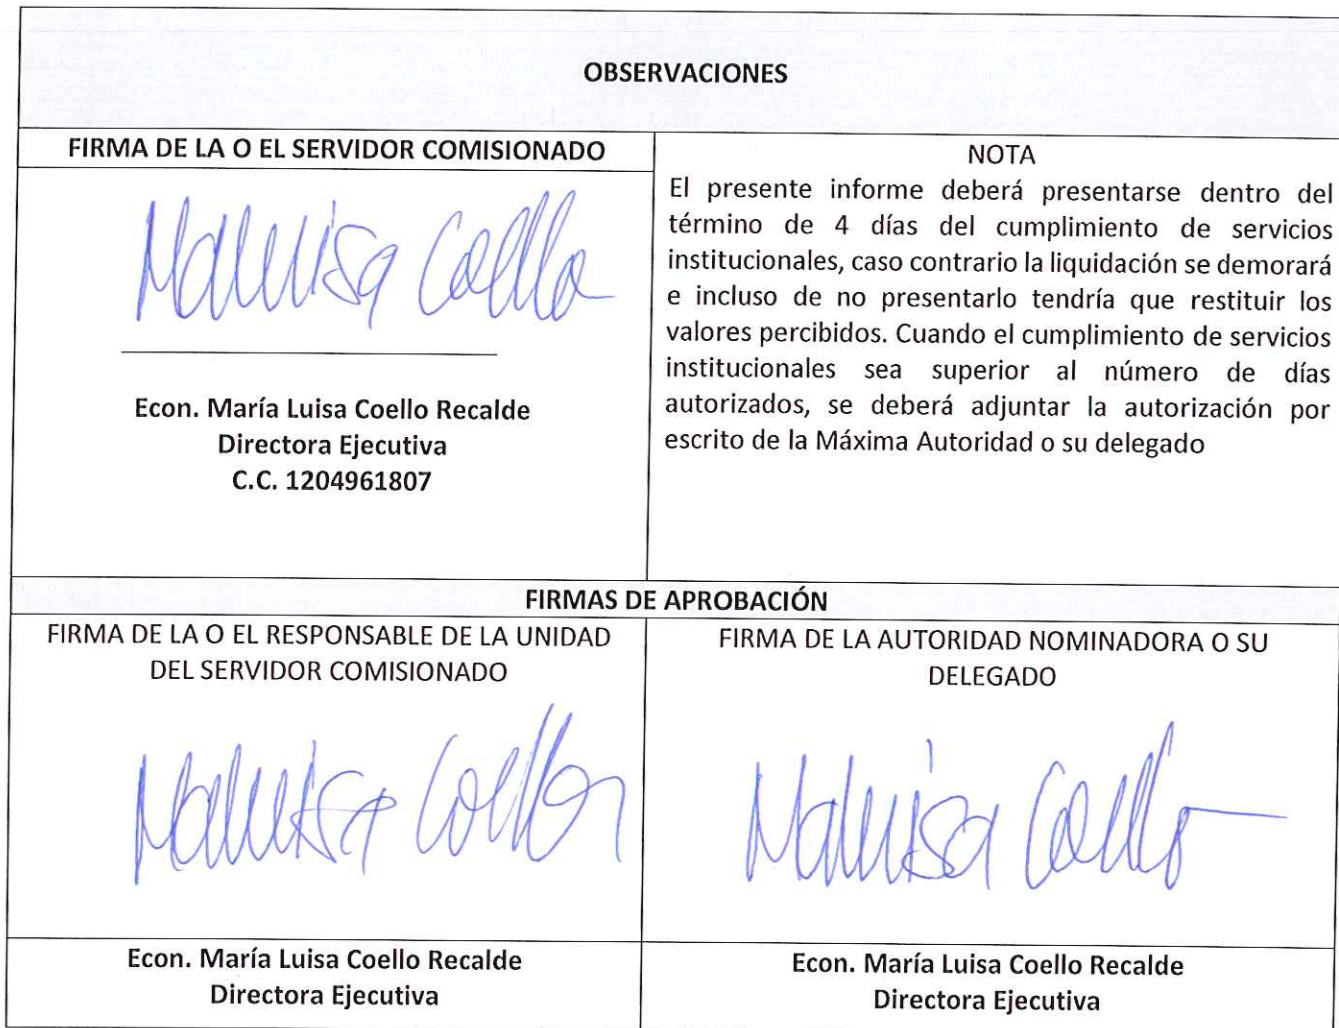 OBSERVACIONES
FIRMA DE LA O EL SERVIDOR COMISIONADO
Maluisa Coello
Econ. María Luisa Coello Recalde
Directora Ejecutiva
C.C. 1204961807
NOTA
El presente informe deberá presentarse dentro del
término de 4 días del cumplimiento de servicios
institucionales, caso contrario la liquidación se demorará
e incluso de no presentarlo tendría que restituir los
valores percibidos. Cuando el cumplimiento de servicios
institucionales sea superior al número de días
autorizados, se deberá adjuntar la autorización por
escrito de la Máxima Autoridad o su delegado
FIRMAS DE APROBACIÓN
FIRMA DE LA O EL RESPONSABLE DE LA UNIDAD
DEL SERVIDOR COMISIONADO
Maluisa Coello
Econ. María Luisa Coello Recalde
Directora Ejecutiva
FIRMA DE LA AUTORIDAD NOMINADORA O SU
DELEGADO
Maluisa Coello
Econ. María Luisa Coello Recalde
Directora Ejecutiva